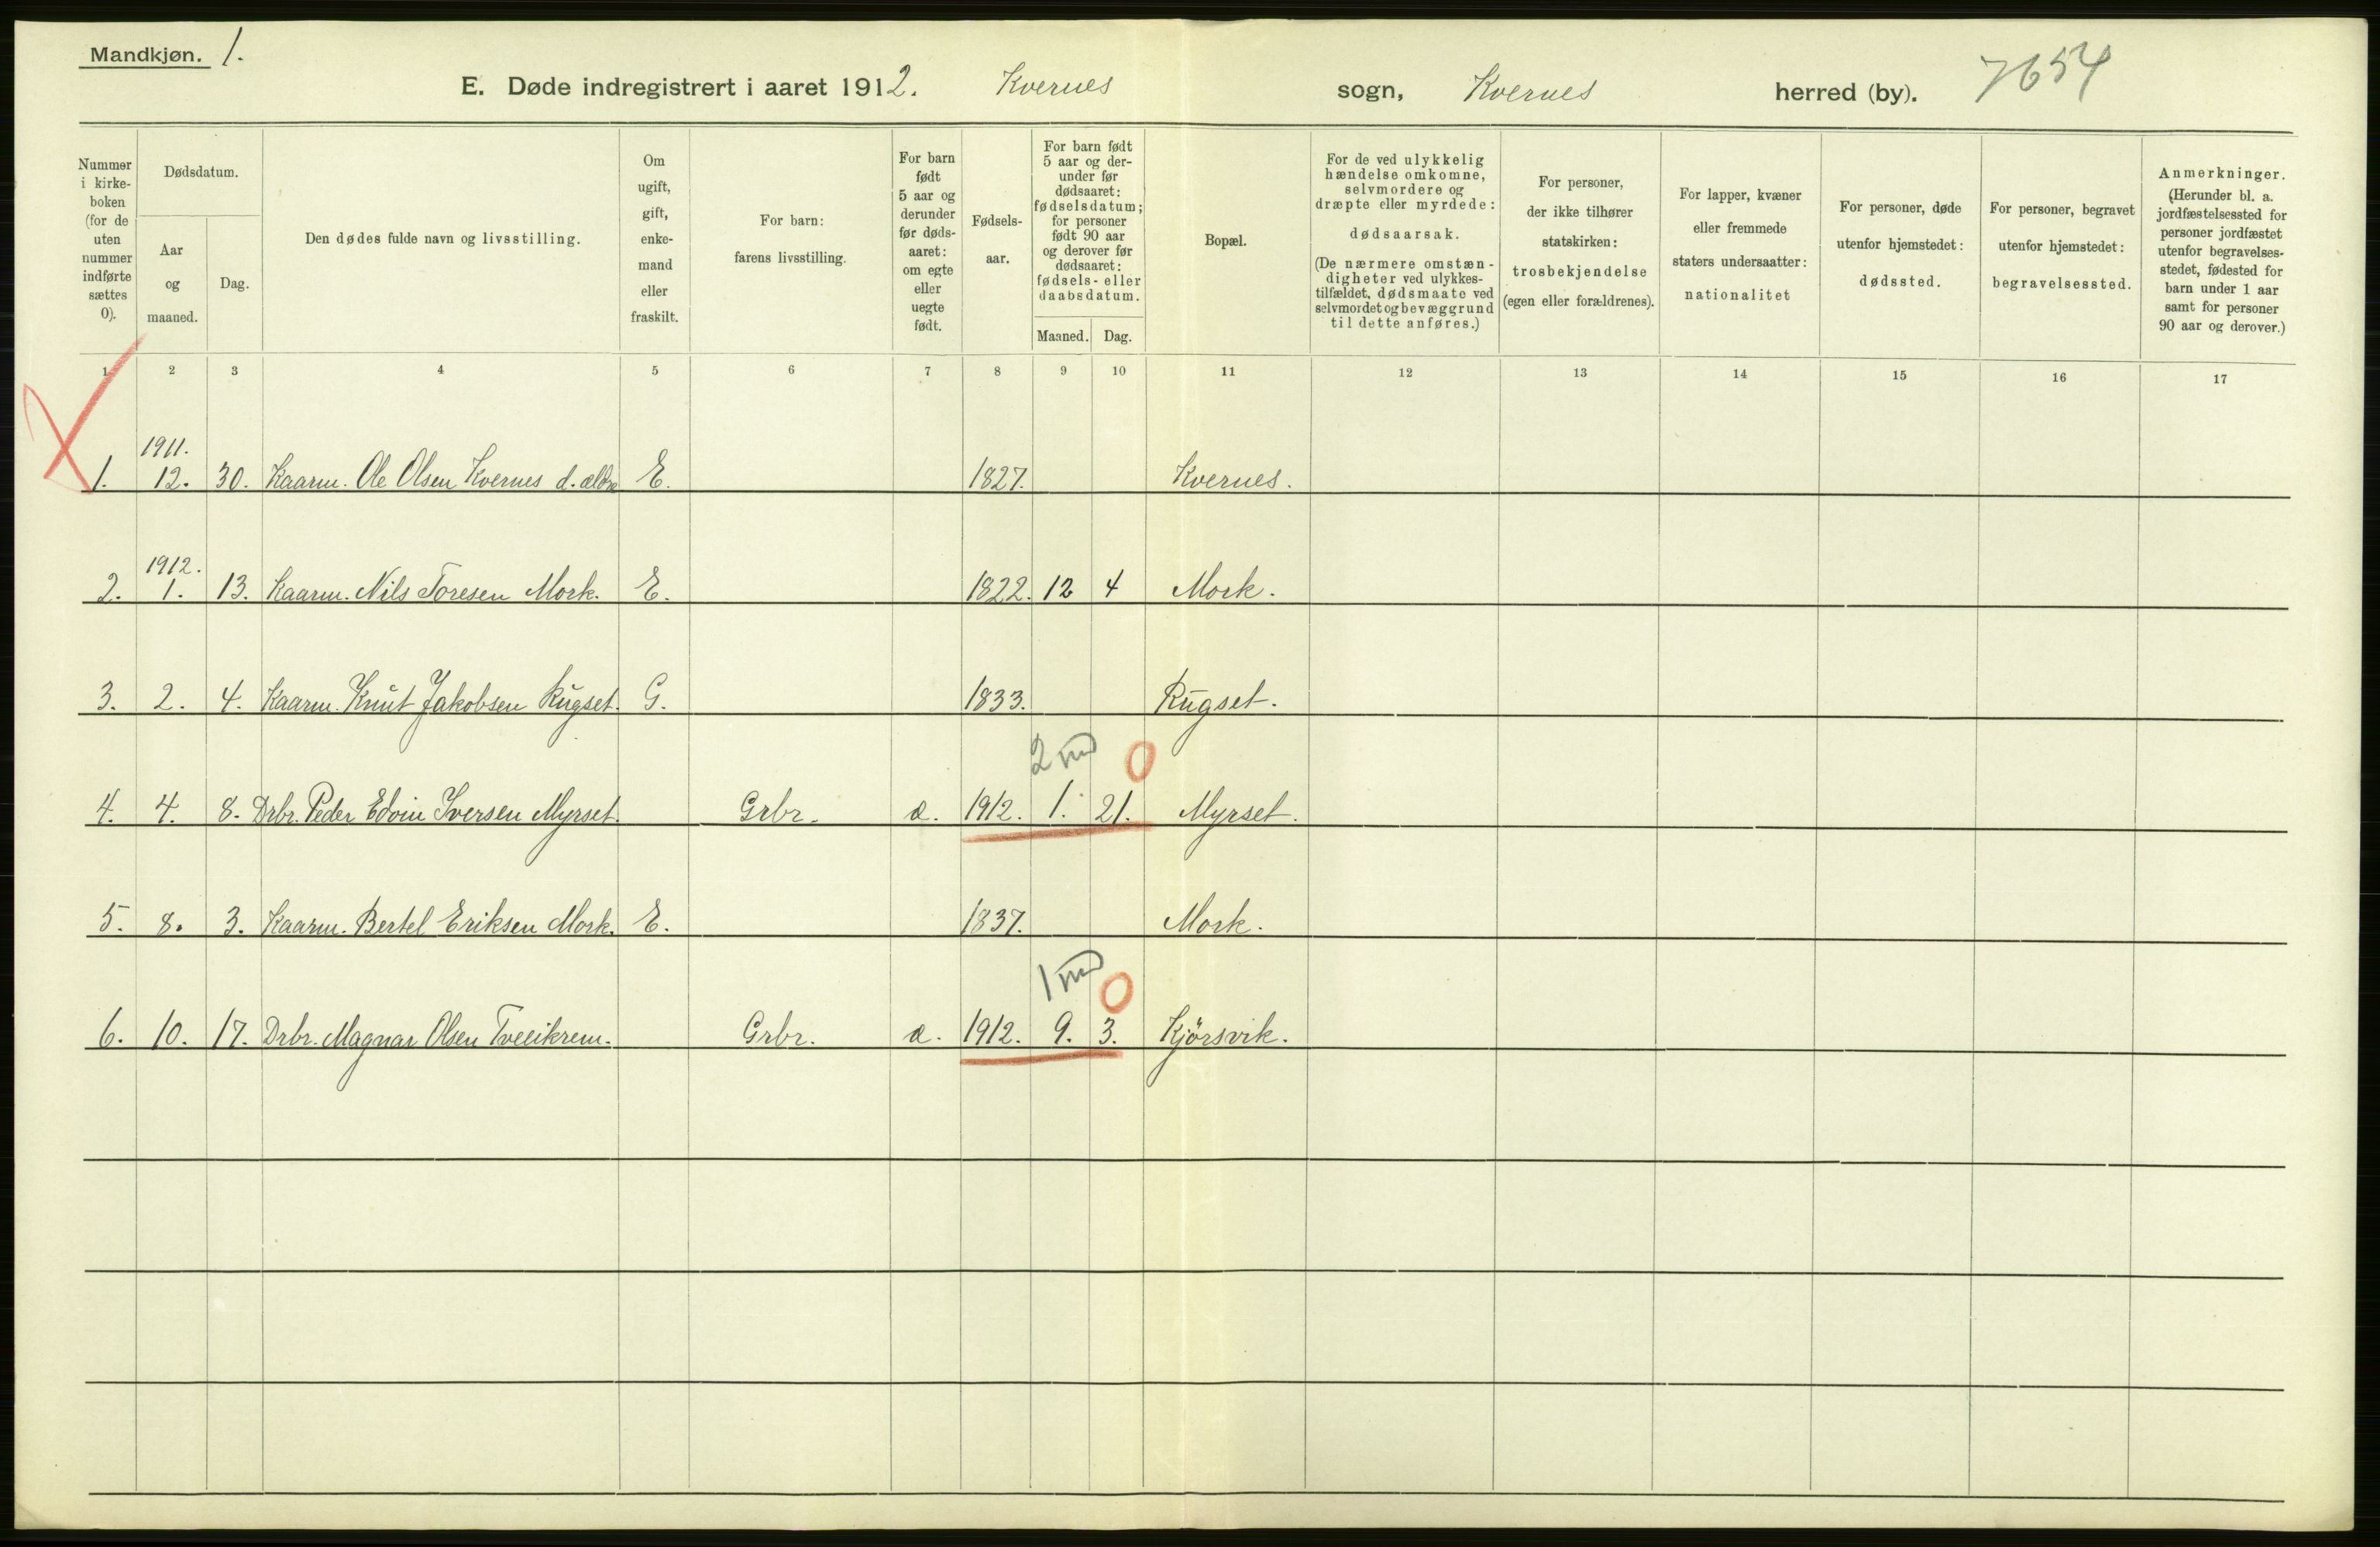 Mandkjøn. 1.
E. Døde indregistrert i aaret 1912. Kvernes sogn, Kvernes herred (by). 7654
Nummer i kirke-boken (for de uten nummer indførte sættes 0).
Dødsdatum.
Aar og maaned.
Dag.
Den dødes fulde navn og livsstilling.
Om ugift, gift, enke-mand eller fraskilt.
For barn: farens livsstilling.
For barn født 5 aar og derunder før døds-aaret: om egte eller uegte født.
Fødsels-aar.
For barn født 5 aar og der-under før dødsaaret: fødselsdatum; for personer født 90 aar og derover før dødsaaret: fødsels- eller daabsdatum.
Maaned. Dag.
Bopæl.
For de ved ulykkelig hændelse omkomne, selvmordere og dræpte eller myrdede: dødsaarsak. (De nærmere omstæn-digheter ved ulykkes-tilfældet, dødsmaate ved selvmordet og bevæggrund til dette anføres.)
For personer, der ikke tilhører statskirken: trosbekjendelse (egen eller forældrenes).
For lapper, kvæner eller fremmede staters undersaatter: nationalitet
For personer, døde utenfor hjemstedet: dødssted.
For personer, begravet utenfor hjemstedet: begravelsessted.
Anmerkninger. (Herunder bl. a. jordfæstelsessted for personer jordfæstet utenfor begravelses-stedet, fødested for barn under 1 aar samt for personer 90 aar og derover.)
1 2 3 4 5 6 7 8 9 10 11 12 13 14 15 16 17
1911.
1. 12. 30. Kaarm. Ole Olsen Kvernes d. ældre E. 1827. Kvernes.
1912.
2. 1. 13. Kaarm. Nils Toresen Mork. E. 1822. 12 4 Mork.
3. 2. 4. Kaarm. Knut Jakobsen Rugset. G. 1833. Rugset.
2 md 0
4. 4. 8. Drbr. Peder Edvin Iversen Myrset. Grbr. æ. 1912. 1. 21. Myrset.
5. 8. 3. Kaarm. Bertel Eriksen Mork. E. 1837. Mork.
1 md 0
6. 10. 17. Drbr. Magnar Olsen Tveeikrem. Grbr. æ. 1912. 9. 3. Kjörsvik.